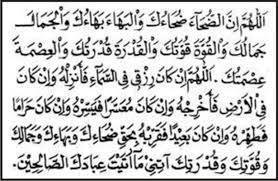 اَللّٰهُمَّ اِنَّ الضُّحَآءَ ضُحَاءُكَ وَالْبَهَاءَ بَهَاءُكَ وَالْجَمَالَ
جَمَالُكَ وَالْقُوَّةَ قُوَّتُكَ وَالْقُدْرَةَ قُدْرَتُكَ وَالْعِصْمَةَ
عِصْمَتُكَ. اَللّٰهُمَّ اِنْ كَانَ رِزْقِى فِى السَّمَآءِ فَأَنْزِلْهُ وَاِنْ كَانَ
فِى الْاَرْضِ فَأَخْرِجْهُ وَاِنْ كَانَ مُعَسَّرًا فَيَسِّرْهُ وَاِنْ كَانَ حَرَامًا
فَطَهِّرْهُ وَاِنْ كَانَ بَعِيْدًا فَقَرِّبْهُ بِحَقِّ ضُحَاءِكَ وَبَهَاءِكَ وَجَمَالِكَ
وَقُوَّتِكَ وَقُدْرَتِكَ آتِنِيْ مَآ اَتَيْتَ عِبَادَكَ الصَّالِحِيْنَ.